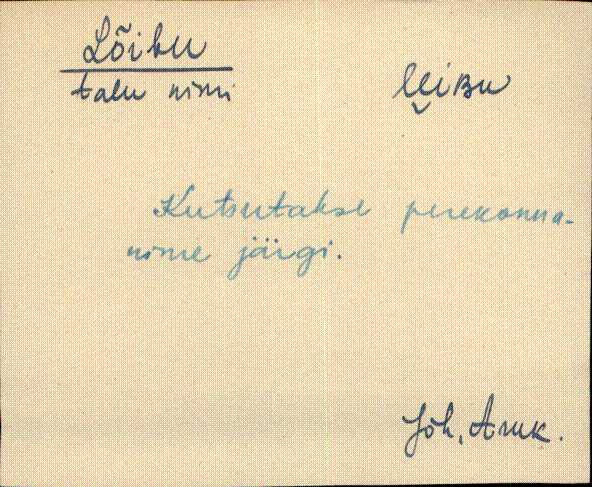 Lõibu
talu nimi
Kutsutakse perekonna-
nime järgi.
Jõh, Aruk.